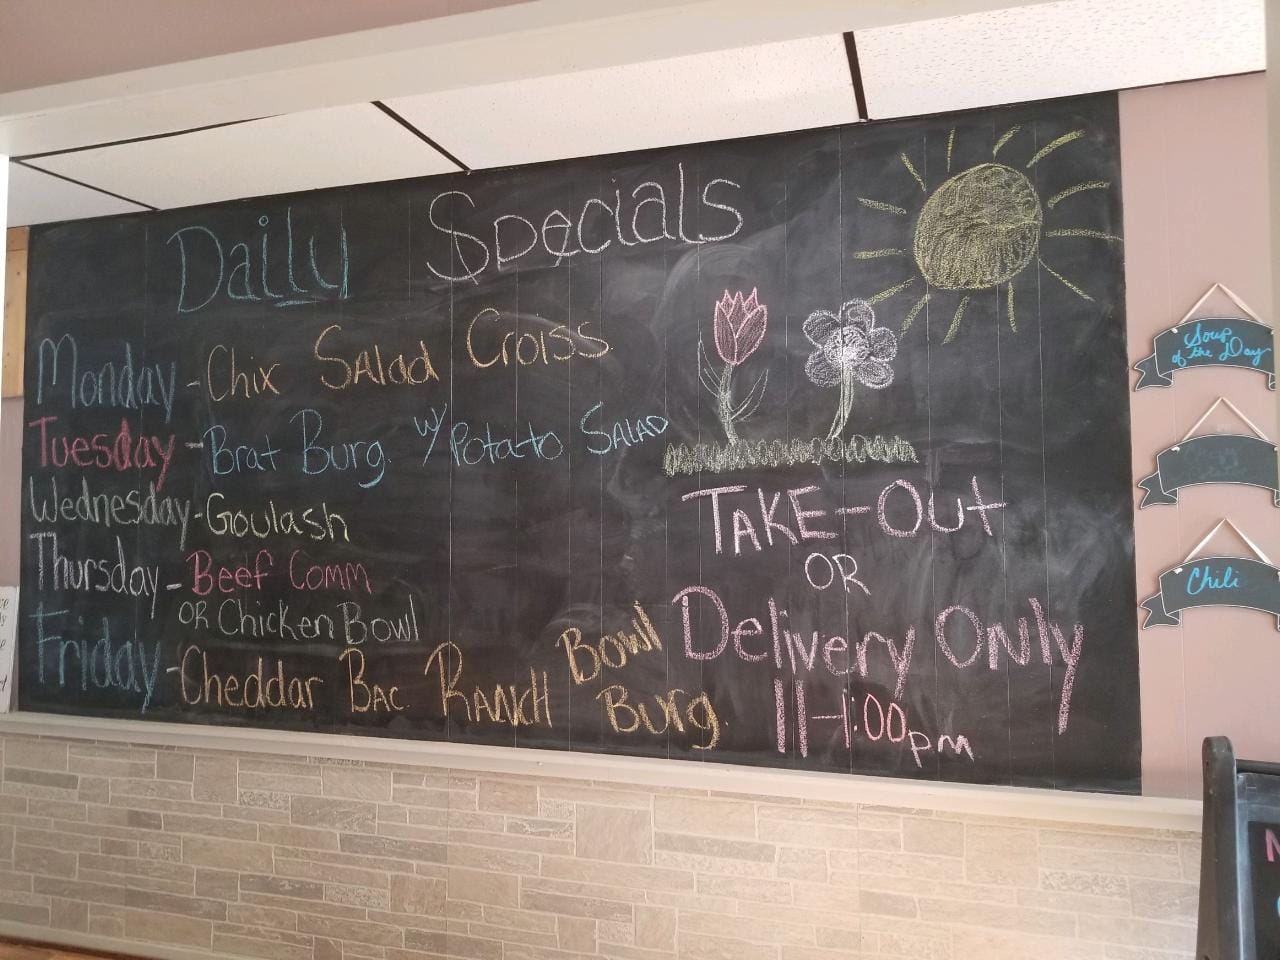 Daily Specials
Monday - Chix Salad Croiss.
Tuesday - Brat Burg. w/ Potato Salad
Wednesday - Goulash
Thursday - Beef Comm
OR Chicken Bowl
Friday - Cheddar Bac. Ranch Burg.
Bowl
TAKE-OUt
OR
Delivery Only
11-1:00pm
Soup
of the Day
Chili